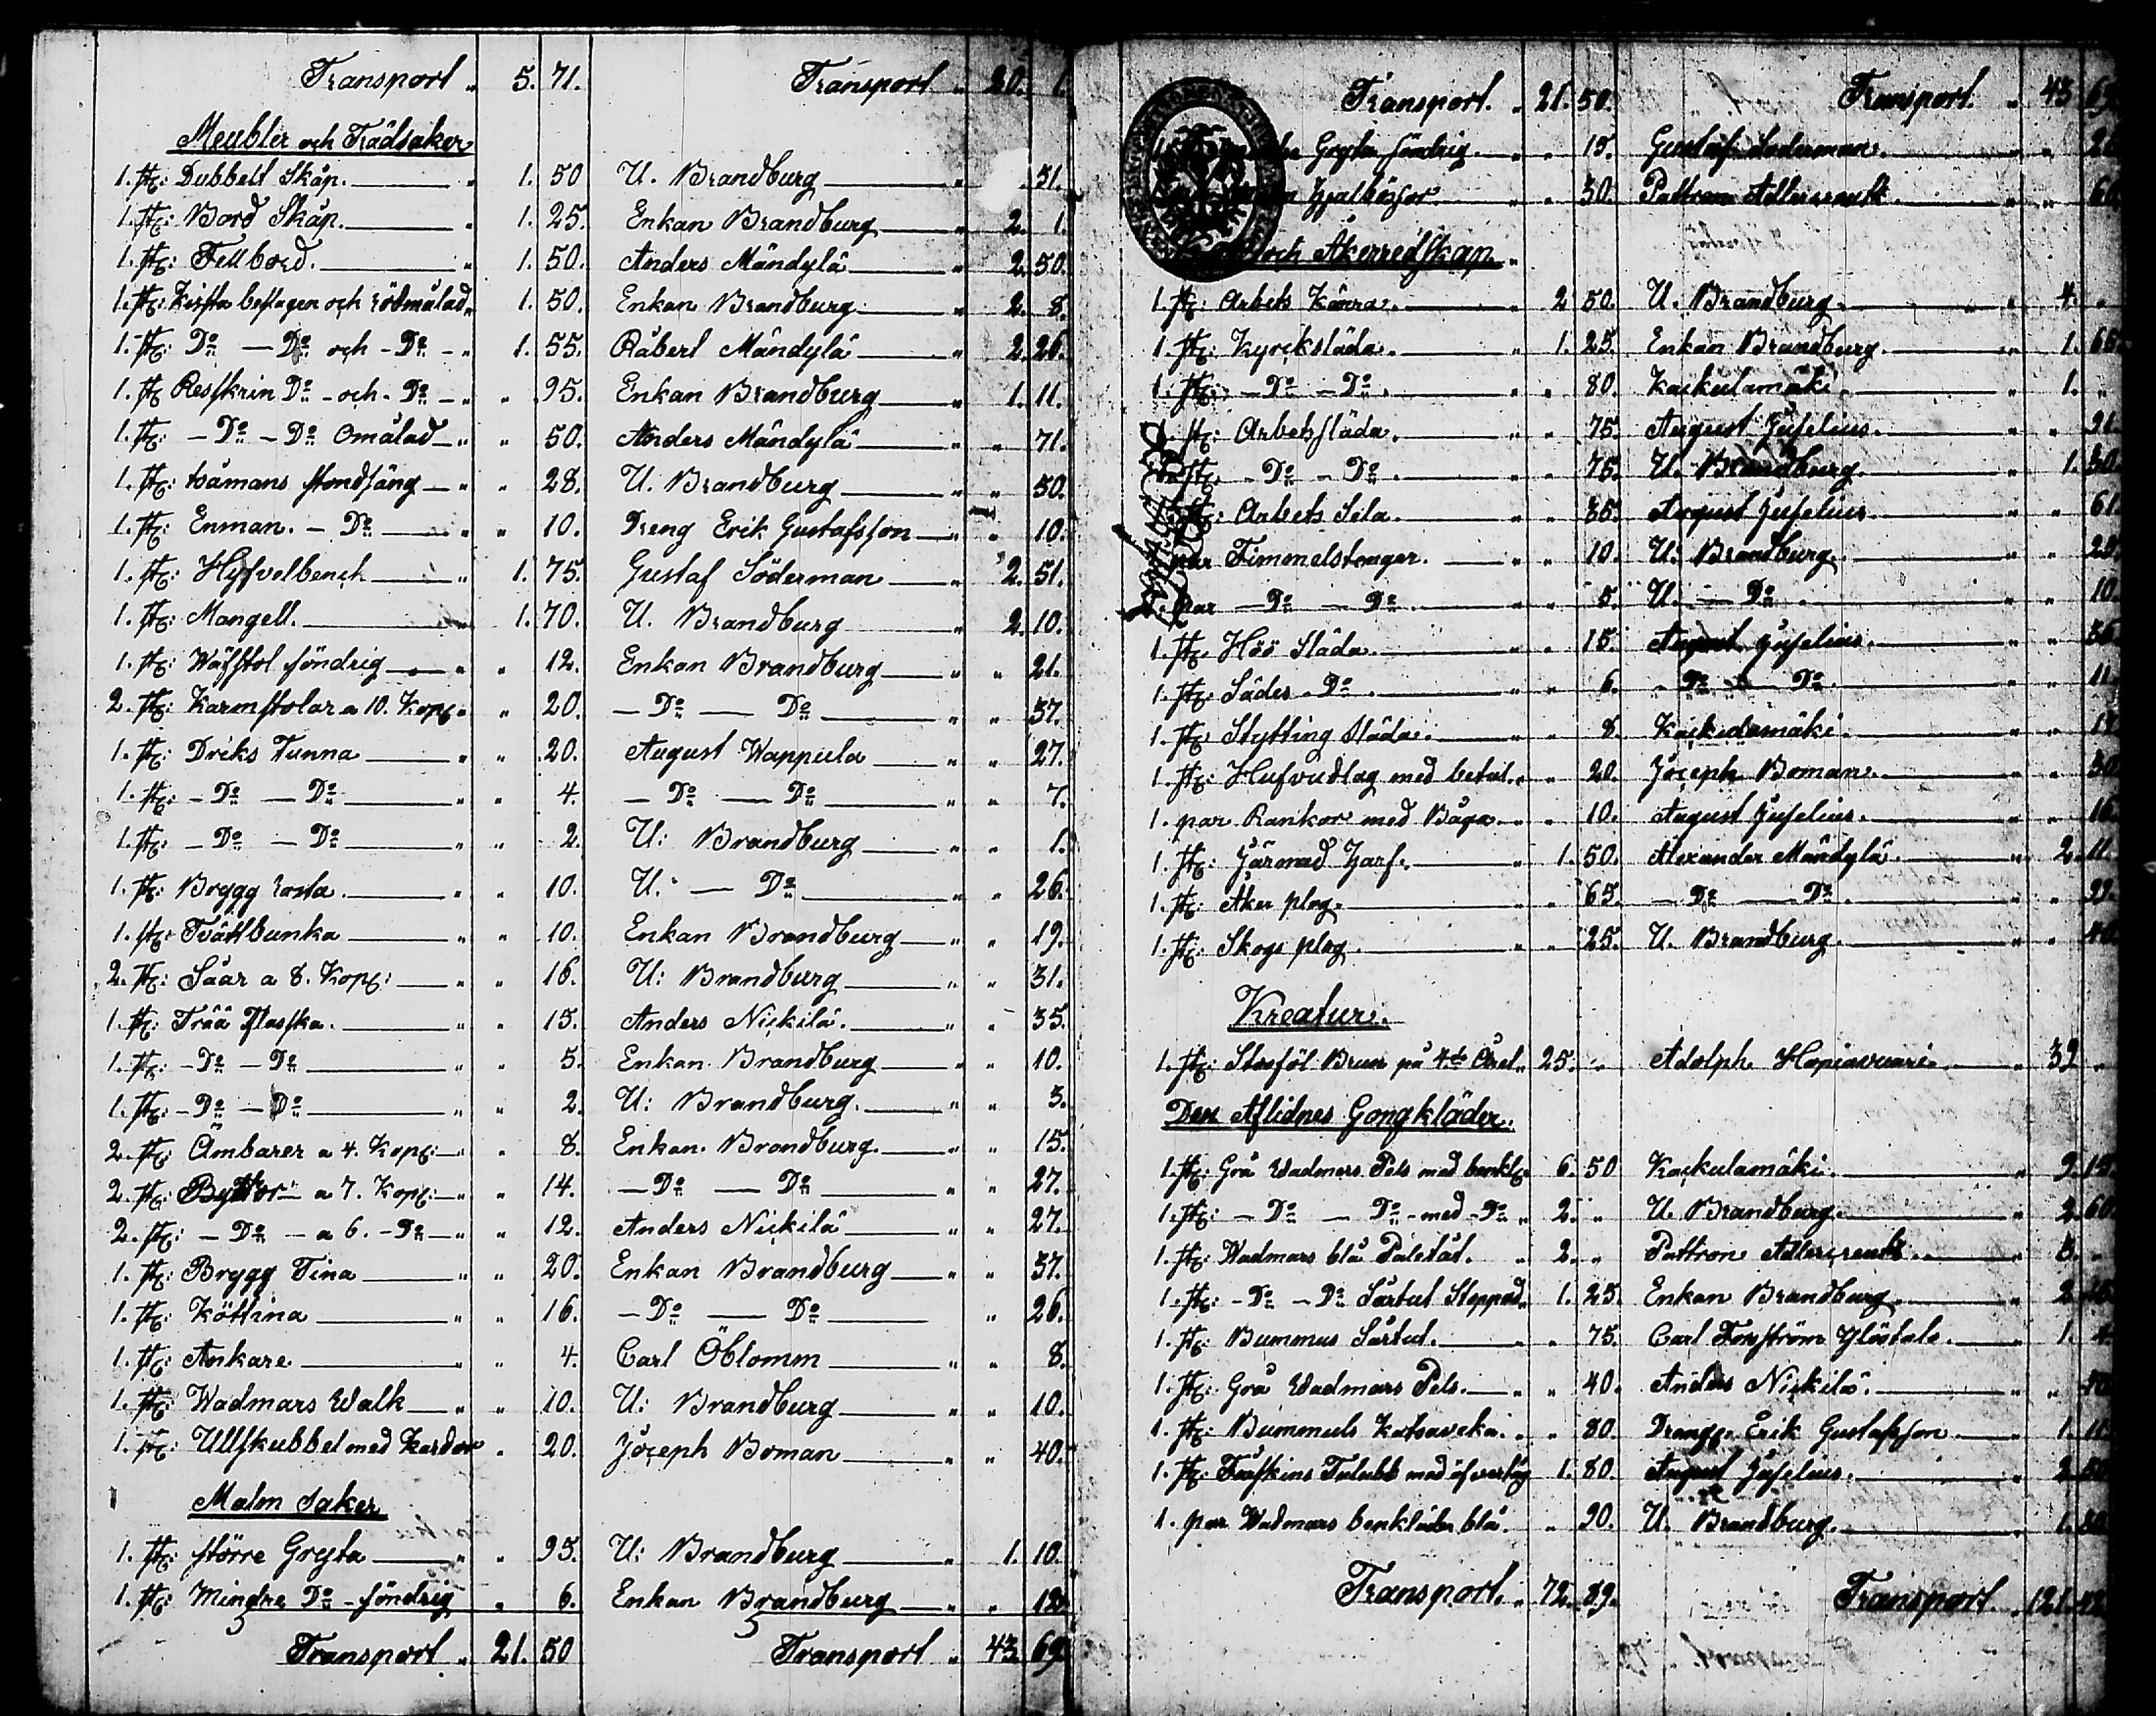 Transport " 5. 71. Transport " 20. 1.
Meubler och Trädsaker
1. st: Dubbelt Skåp. " 1. 50 U. Brandburg " 51.
1. st: Bord Skåp. " 1. 25. Enkan Brandburg " 2. 1.
1. st: Fellbord. " 1. 50. Anders Mändylä " 2. 50.
1. st: Kista beslagen och rödmålad " 1. 50. Enkan Brandburg " 2. 8.
1. st: Do — Do och - Do - " 1. 55. Råbert Mändylä " 2. 26.
1. st Resskrin Do - och - Do - " " 95. Enkan Brandburg " 1. 11.
1. st: - Do - Do Omålad " " 50. Anders Mändylä " " 71.
1. st: tvåmans stondsäng " " 28. U. Brandburg " " 50.
1. st: Enman. - Do " " 10. Dreng Erik Gustafsson " " 10.
1. st: Hyfvelbench " 1. 75. Gustaf Söderman " 2. 51.
1. st: Mangell. " 1. 70. U. Brandburg " 2. 10.
1. st: Wäfstol söndrig " " 12. Enkan Brandburg " " 21.
2. st: Karmstolar a 10. Kop: " " 20. — Do — Do " " 37.
1. st: Driks Tunna " " 20. August Wappula " " 27.
1. st: - Do — Do " " 4. — Do — Do " " 7.
1. st: - Do — Do " " 2. U: Brandburg " " 1.
1. st: Brygg rosta. " " 10. U. — Do " " 26.
1. st: Tvättbunka " " 10. Enkan Brandburg " " 19.
2. st: Såar a 8. Kop: " " 16. U: Brandburg " " 31.
1. st: Träå Flasska. " " 15. Anders Nickilä. " " 35.
1. st: - Do - Do " " 5. Enkan Brandburg " " 10.
1. st: - Do - Do " " 2. U: Brandburg. " " 3.
2. st: Ämbarer a 4. Kop: " " 8. Enkan Brandburg. " " 15.
2. st: Byttor a 7. Kop: " " 14. — Do — Do " " 27.
2. st: - Do - a 6. - Do " " 12. Anders Nickilä " " 27.
1. st: Brygg Tina " " 20. Enkan Brandburg " " 37.
1. st: Köttina " " 16. — Do — Do " 26.
1. st: Ankare " " 4. Carl Öblomm " " 8.
1. st: Wadmars Walk " " 10. U: Brandburg " " 10.
1. st: Ullskubbel med Kardor " 20. Joceph Boman " " 40.
Malm Saker
1. st: större Gryta " " 95. U: Brandburg " 1. 10.
1. st: Mindre Do - söndrig " 6. Enkan Brandburg " " 12.
Transport " 21. 50 Transport " 43. 69.
Transport. " 21. 50. Transport. " 43 69.
Gryta söndrig " " 15. Gustaf Soderman. " "
" " 30. Pattron Adlercreutz " "
och Åkerredskap.
1. st: Arbets Kärra. " 2 50. U. Brandburg. " 4. "
1. st: Kyrckslåda. " 1. 25. Enkan Brandburg. " 1. 66.
1. st: — Do — Do. " " 80. Kackulamäki. " 1. "
1. st: Arbetsslåda. " " 75. August Juselius. " " 91.
st: - Do - Do. " " 75. U. Brandburg. " 1. 30.
st: Arbets Sela. " " 35. August Juselius. " " 61.
par Fimmelstonger. " " 10. U. Brandburg. " "
1. par — Do — Do. " " 5. U. — Do. " " 10.
1. st: Höö Slåda. " " 15. August Juselius. " " 36.
1. st: Sädes - Do. " " 6. - Do — Do. " " 11.
1. st: Stytting Slåda. " " 8. Kackulamäki. " "
1. st: Hufvudlag med betsel. " " 20. Joceph Boman. " " 30.
1. par Rankor med Båga. " " 10. August Juselius. " " 16.
1. st: Järnad Harf. " 1. 50. Alexander Mändylä. " 2. 11.
1. st: Åker plog. " " 65. — Do — Do. " "
1. st: Skogs plog. " " 25. U. Brandburg. " "
Kreatur.
1. st: Stoföl Brun på 4:de Året " 25. " Adolph " 39 "
Den Aflidnes Gongkläder.
1. st: Grå Wadmars Pels med 6. 50 Kackulamäki. "
1. st: — Do — Do - med - Do " 2. " U. Brandburg. " 2. 60.
1. st: Wadmars blå Paletåt. " 2. " Pattron Adlercreutz. " 3. "
1. st: - Do - Do Sårtut Steppad " 1. 25. Enkan Brandburg. " 2
1. st: Bummus Sårtut. " " 75. Carl Forsström " 1. 4.
1. st: Grå Wadmars Pels. " " 40. Anders Nickilä. " "
1. st: Bummuls Katsaveka. " " 80. Drengg. Erik Gustafsson " 1.
1. st: Fårskins Tulubb med öfvertåg 1. 80. August Juselius. " 2.
1. par Wadmars benkläder blå. " 90. U. Brandburg. " 1.
Transport. " 72. 89. Transport. " 121.